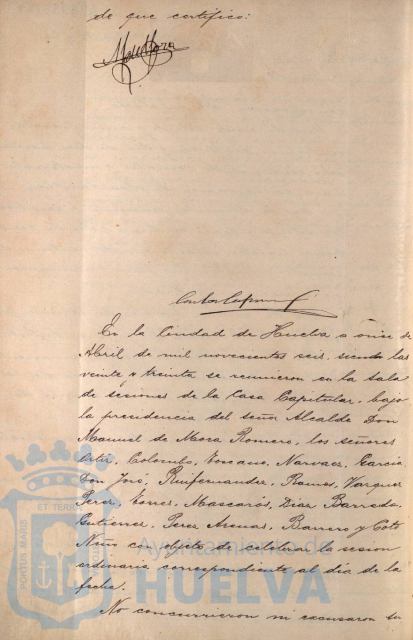 de que certifico:
En la Ciudad de Huelva a once de
Abril de mil novecientos seis, siendo las
veinte y treinta se reunieron en la Sala
de sesiones de la Casa Capitular, bajo
la presidencia del señor Alcalde Don
Manuel de Mora Romero, los señores
Colombo, Toscano, Narvaez, García
Don José, Ruifernandez, Ramos, Vazquez
Perez, Torres, Mascarós, Diaz Barreda,
Gutierrez, Perez Arenas, Barrero y Coto
Niño con objeto de celebrar la sesion
ordinaria correspondiente al día de la
fecha.
No concurrieron ni excusaron su
PORTUS MARIS ET TERRAE
Ayuntamiento de
HUELVA